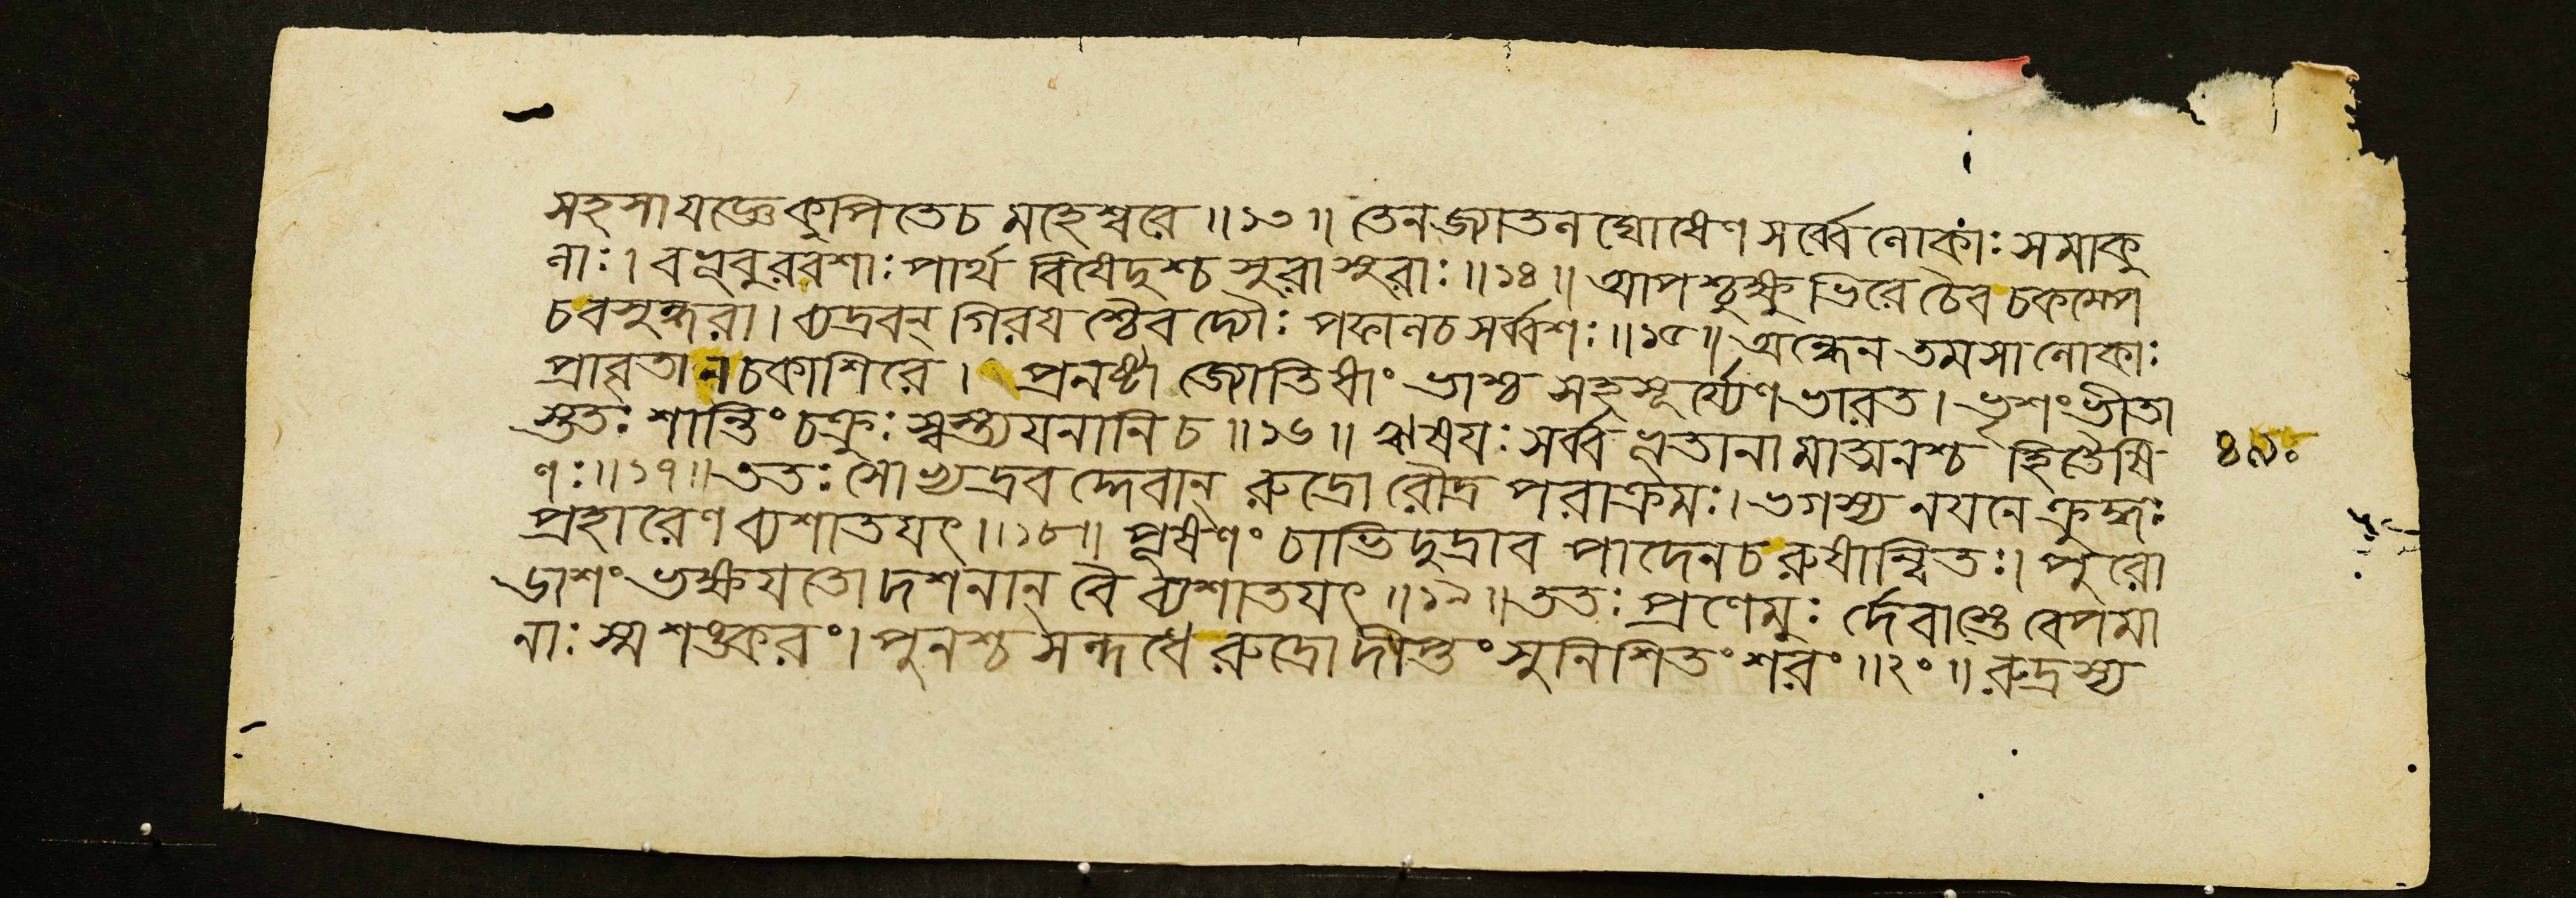 সহসা যজ্ঞে কুপিতে চ মহেশ্বরে ॥১৩॥ তেন জ্যাতলঘোষেণ সর্ব্বে লোকাঃ সমাকু
লাঃ। বভূবুরবশাঃ পার্থ বিষেদুশ্চ সুরাসুরাঃ ॥১৪॥ আপশ্চুক্ষুভিরে চৈব চকম্পে
চ বসুন্ধরা। ব্যদ্রবন্ গিরযশ্চৈব দ্যৌঃ পফাল চ সর্ব্বশঃ ॥১৫॥ অন্ধেন তমসা লোকাঃ
প্রাবৃতা ন চকাশিরে। প্রনষ্টা জ্যোতিষাং ভাশ্চ সহ সূর্য্যেণ ভারত। ভৃশং ভীতা
স্ততঃ শান্তিং চক্রুঃ স্বস্ত্যযনানি চ ॥১৬॥ ঋষযঃ সর্ব্বভূতানামাত্মনশ্চ হিতৈষি
ণঃ ॥১৭॥ ততঃ সোভ্যদ্রবদ্দেবান্ রুদ্রো রৌদ্রপরাক্রমঃ। ভগস্য নযনে ক্রুদ্ধঃ
প্রহারেণ ব্যশাতযৎ ॥১৮॥ পূষণং চাভিদুদ্রাব পাদেন চ রুষান্বিতঃ। পুরো
ডাশং ভক্ষযতো দশনান্ বৈ ব্যশাতযৎ ॥১৯॥ ততঃ প্রণেমুঃ র্দেবাস্তে বেপমা
নাঃ স্ম শঙ্করং। পুনশ্চ সন্দধে রুদ্রো দীপ্তং সুনিশিতং শরং ॥২০॥ রুদ্রস্য